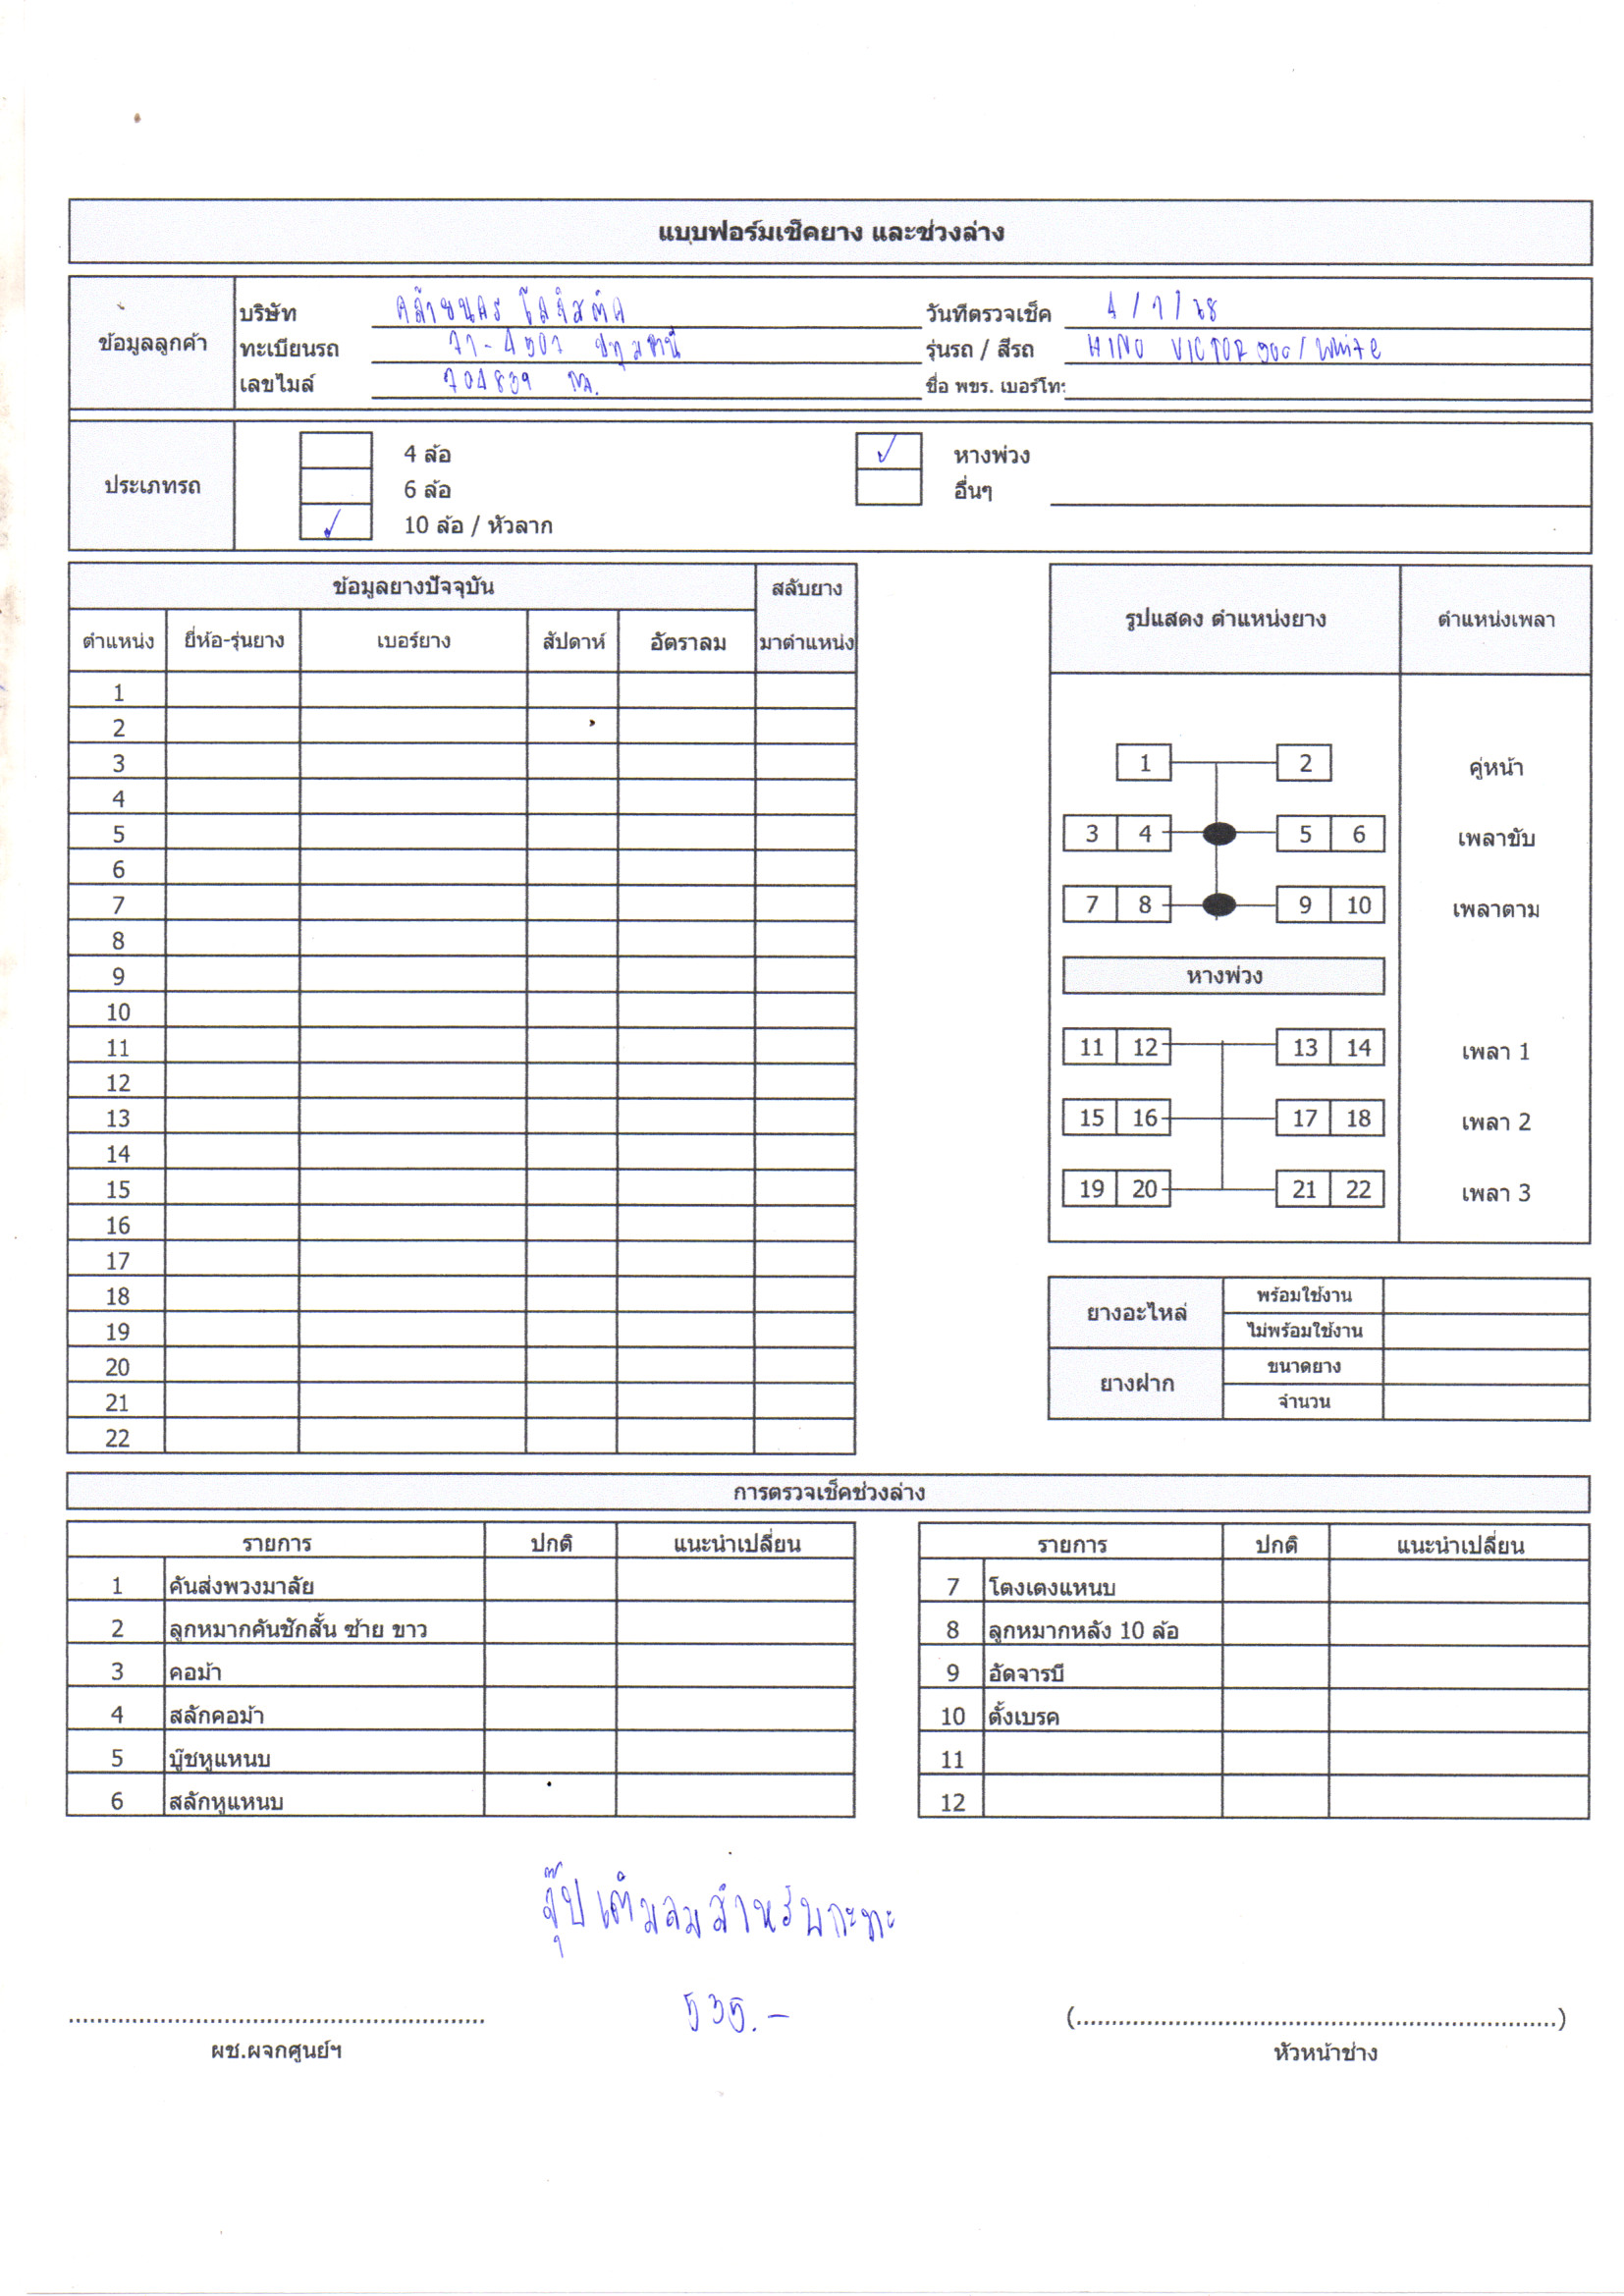 แบบฟอร์มเช็คยาง และช่วงล่าง
ข้อมูลลูกค้า
บริษัท คล้ายนคร โลจิสติค วันที่ตรวจเช็ค
ทะเบียนรถ ปทุมธานี รุ่นรถ / สีรถ HINO VICTOR 500 / White
เลขไมล์ ชื่อ พขร. เบอร์โทร:
ประเภทรถ
4 ล้อ ✓ หางพ่วง
6 ล้อ อื่นๆ
✓ 10 ล้อ / หัวลาก
ข้อมูลยางปัจจุบัน สลับยาง
ตำแหน่ง ยี่ห้อ-รุ่นยาง เบอร์ยาง สัปดาห์ อัตราลม มาตำแหน่ง
1
2
3
4
5
6
7
8
9
10
11
12
13
14
15
16
17
18
19
20
21
22
รูปแสดง ตำแหน่งยาง ตำแหน่งเพลา
1 2 คู่หน้า
3 4 5 6 เพลาขับ
7 8 9 10 เพลาตาม
หางพ่วง
11 12 13 14 เพลา 1
15 16 17 18 เพลา 2
19 20 21 22 เพลา 3
ยางอะไหล่ พร้อมใช้งาน
ไม่พร้อมใช้งาน
ยางฝาก ขนาดยาง
จำนวน
การตรวจเช็คช่วงล่าง
รายการ ปกติ แนะนำเปลี่ยน
1 คันส่งพวงมาลัย
2 ลูกหมากคันชักสั้น ซ้าย ขาว
3 คอม้า
4 สลักคอม้า
5 บู๊ชหูแหนบ
6 สลักหูแหนบ
รายการ ปกติ แนะนำเปลี่ยน
7 โตงเตงแหนบ
8 ลูกหมากหลัง 10 ล้อ
9 อัดจารบี
10 ตั้งเบรค
11
12
จุ๊ปเติมลมสำหรับกะทะ
535.-
ผช.ผจกศูนย์ฯ
(..........)
หัวหน้าช่าง